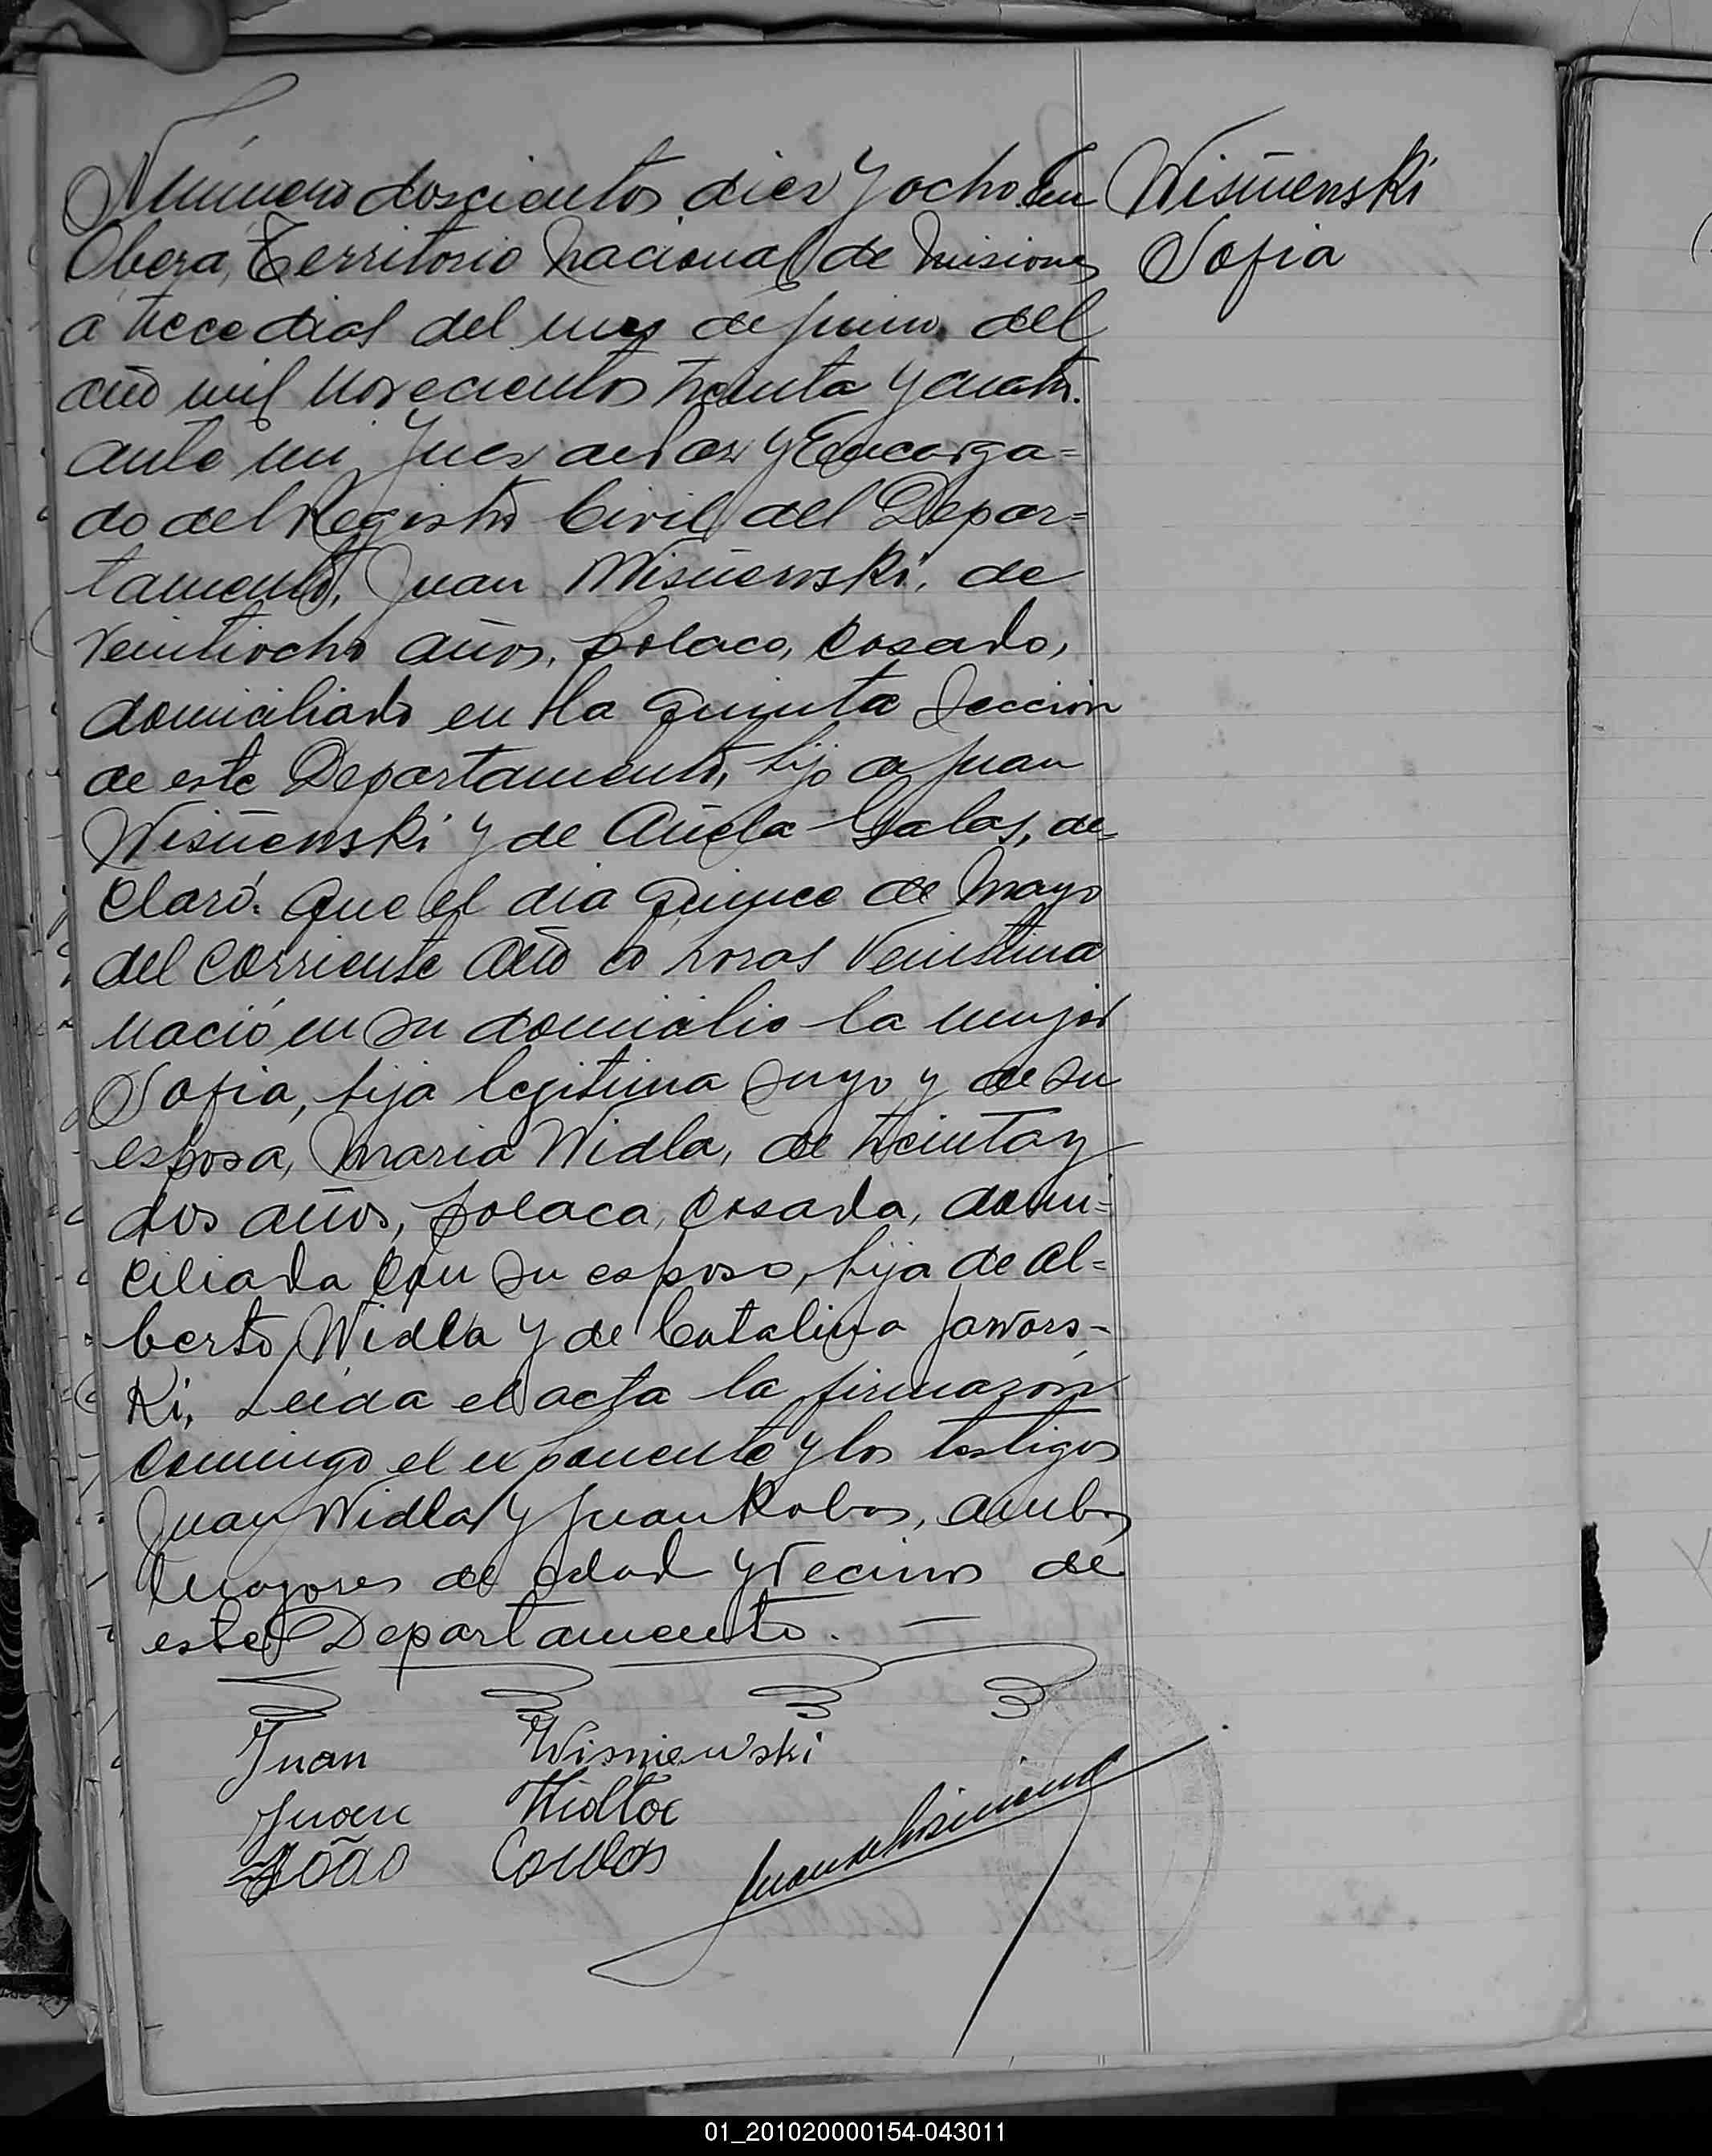 Número doscientos diez y ocho. En
Oberá, Territorio Nacional de Misiones
a trece dias del mes de junio del
año mil novecientos treinta y cuatro.
ante mi, Juez de Paz y Encarga=
do del Registro Civil del Depar=
tamento, Juan Wisñewski, de
veintiocho años, polaco, casado,
domiciliado en la quinta Sección
de este Departamento, hijo de Juan
Wisñewski y de Añela Galas, de=
claró: Que el dia quince de Mayo
del corriente año a horas veintiuna
nació en su domicilio la mujer
Sofia, hija legitima suya y de su
esposa, Maria Widla, de treinta y
dos años, polaca, casada, domi=
ciliada con su esposo, hija de Al=
berto Widla y de Catalina Jawors-
ki, Leida el acta la firmaron
conmigo el exponente y los testigos
Juan Widla y Juan Kobos, ambos
mayores de edad y vecinos de
este Departamento.
Juan Wisniewski
Juan Widła
João
Wisñewski
Sofia
01_201020000154-043011